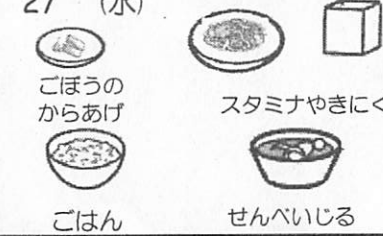 27 (水)
ごぼうの
からあげ
スタミナやきにく
ごはん
せんべいじる